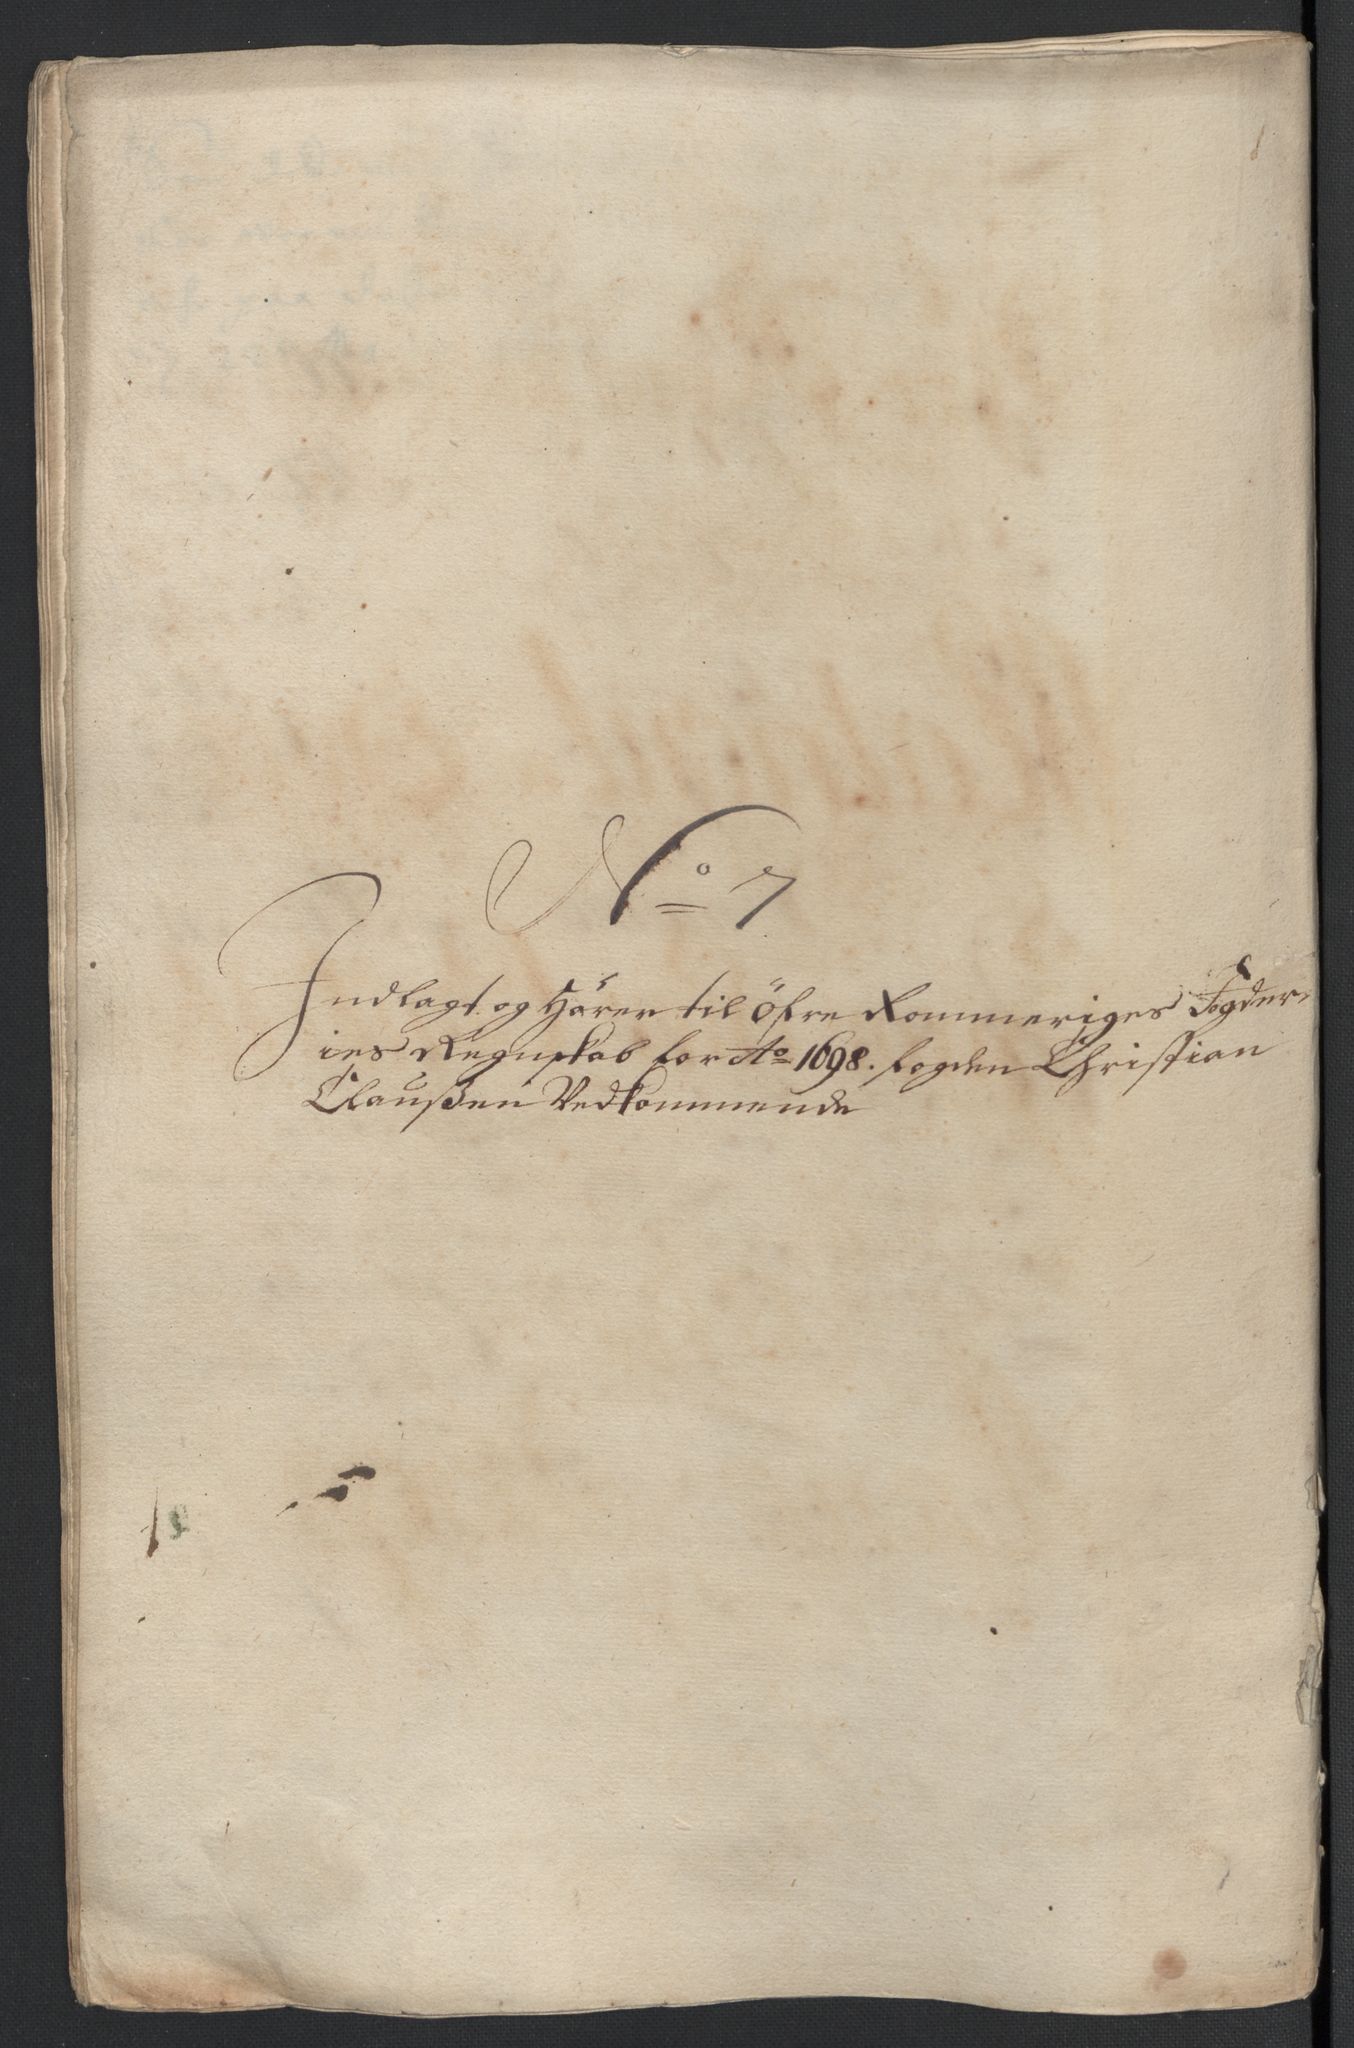 No 7
Indlagt og Hörer til Öfre Rommeriges Fogder,
ies Regnskab for Ao 1698. fogden Christian
Claußen Vedkommende